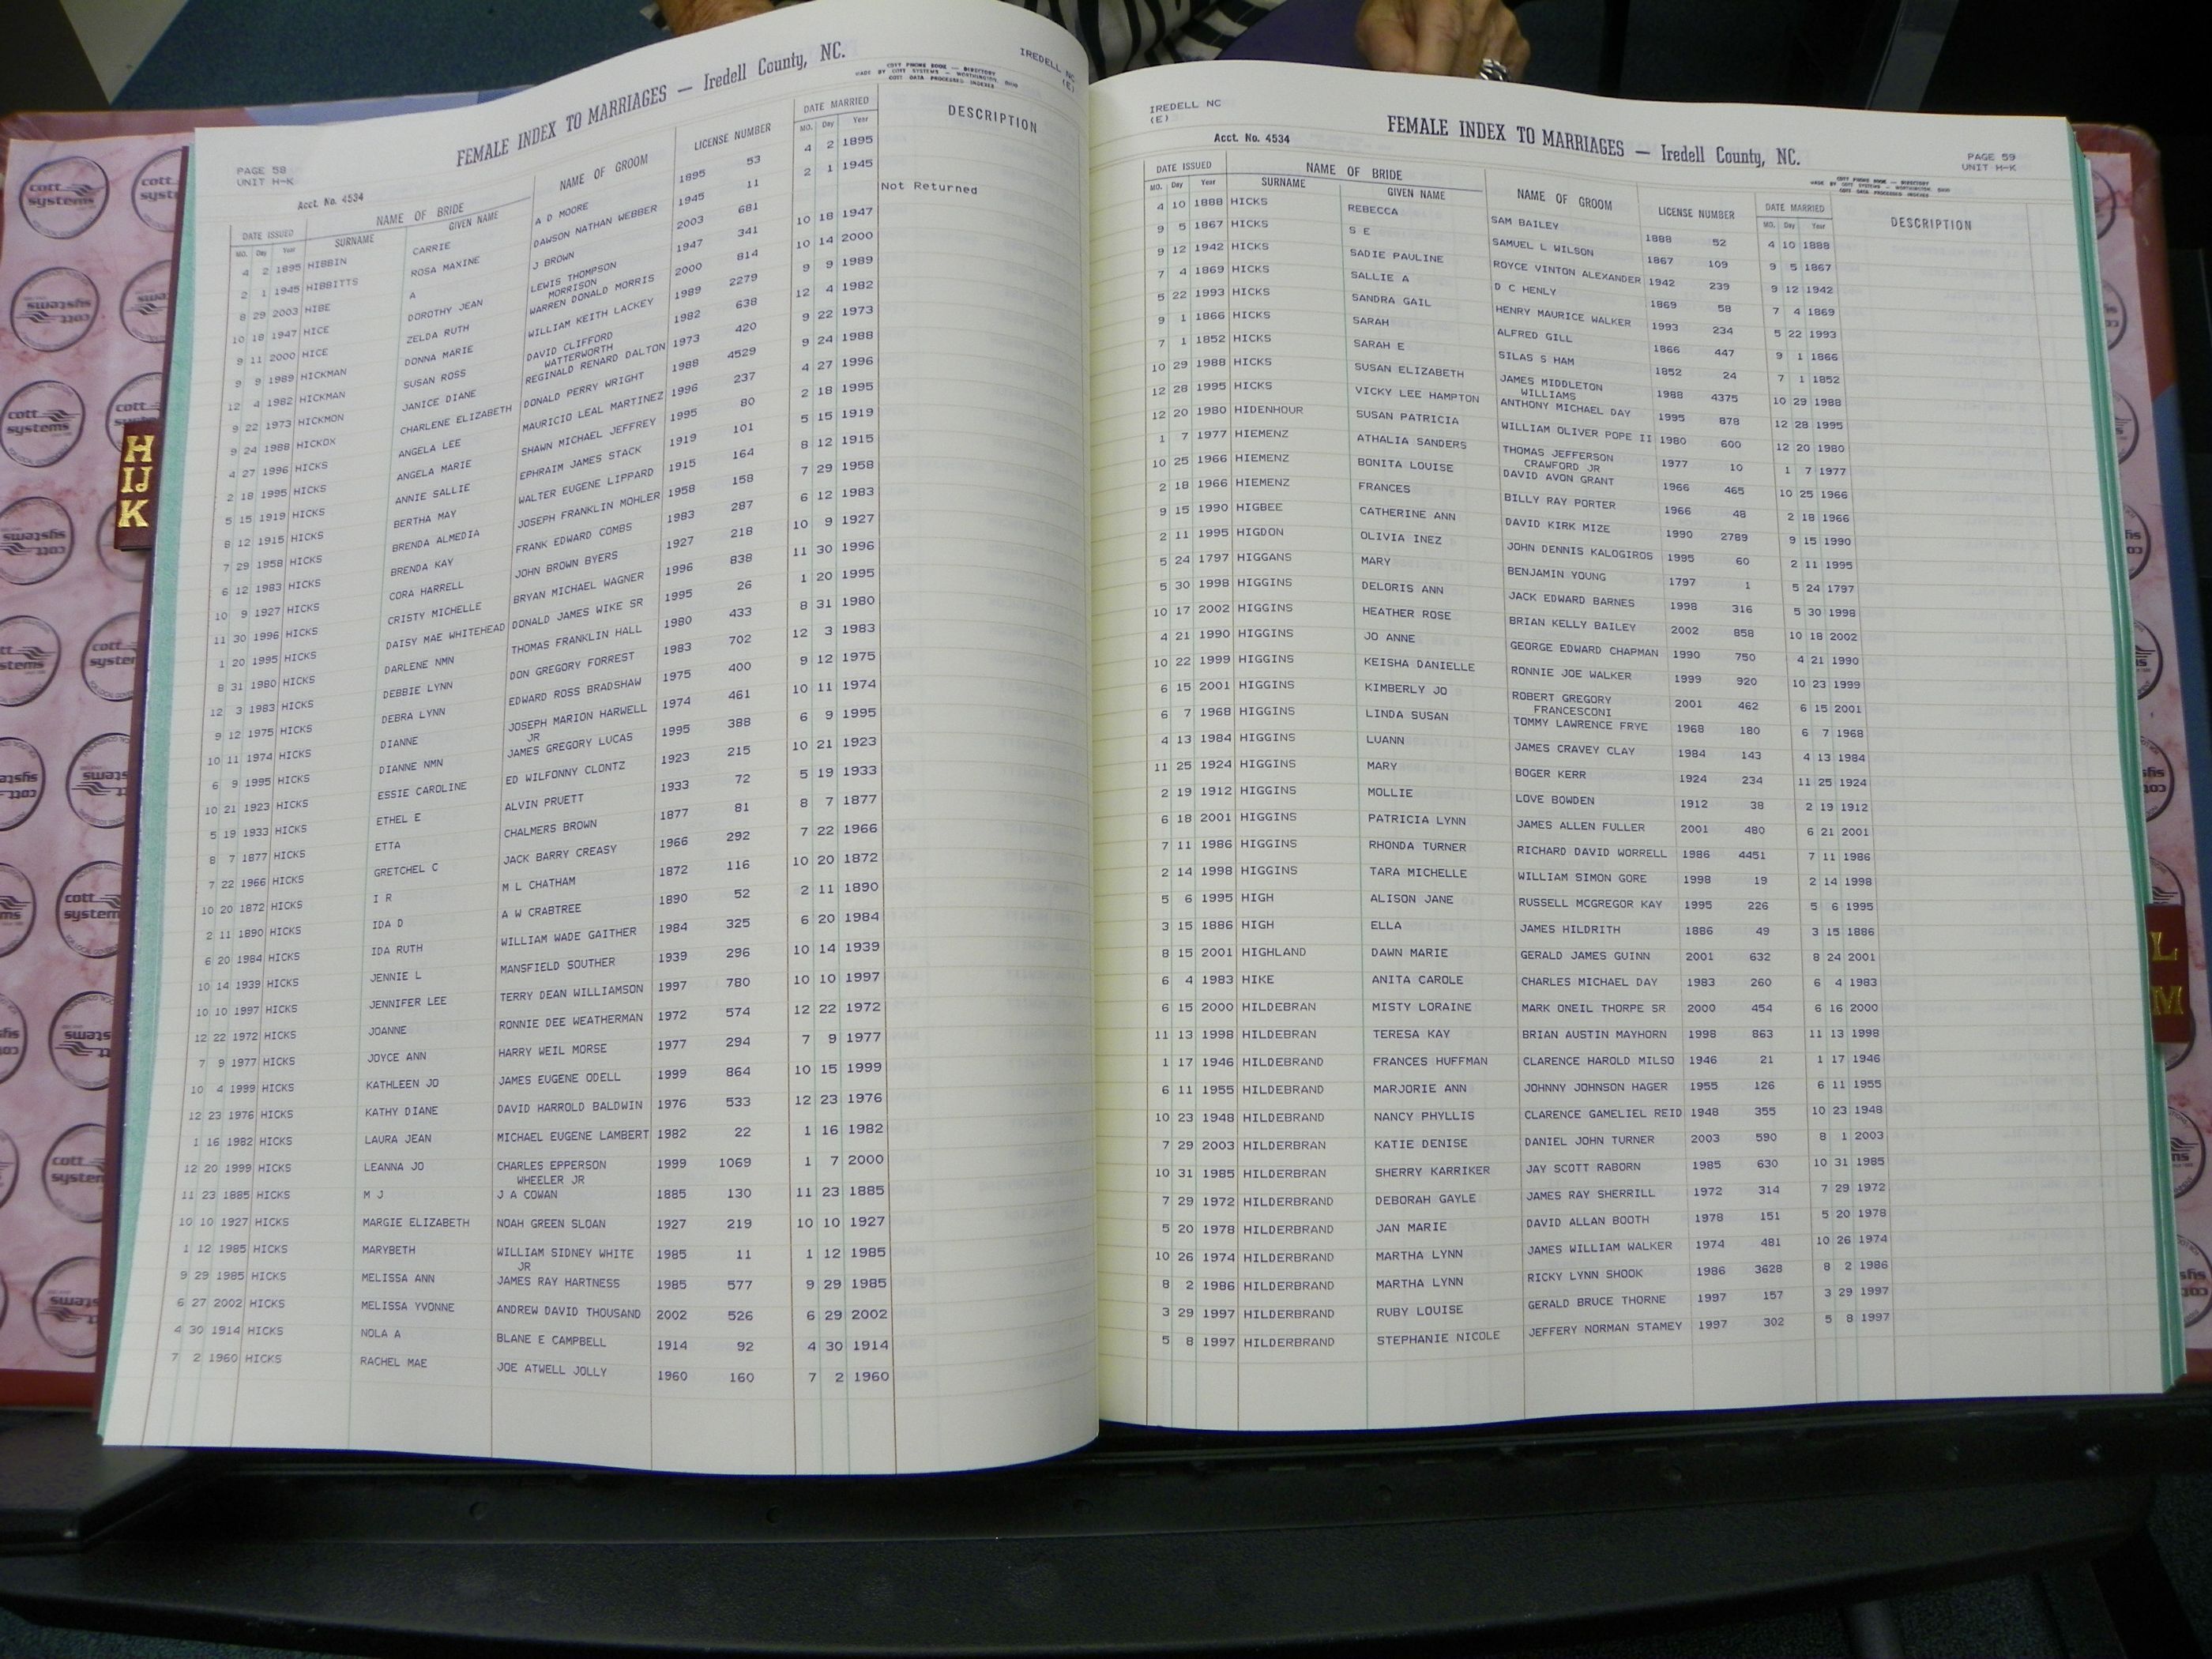 FEMALE INDEX TO MARRIAGES — Iredell County, NC.
IREDELL NC
(E)
COTT PHONE BOOK — DIRECTORY
MADE BY COTT SYSTEMS — WORTHINGTON, OHIO
COTT DATA PROCESSED INDEXES
PAGE 58
UNIT H-K
Acct. No. 4534
DATE ISSUED NAME OF BRIDE NAME OF GROOM LICENSE NUMBER DATE MARRIED DESCRIPTION
MO. Day Year SURNAME GIVEN NAME MO. Day Year
4 2 1895 HIBBIN CARRIE A D MOORE 1895 53 4 2 1895
2 1 1945 HIBBITTS ROSA MAXINE DAWSON NATHAN WEBBER 1945 11 2 1 1945
8 29 2003 HIBE A J BROWN 2003 681 Not Returned
10 18 1947 HICE DOROTHY JEAN LEWIS THOMPSON 1947 341 10 18 1947
MORRISON
9 11 2000 HICE ZELDA RUTH WARREN DONALD MORRIS 2000 814 10 14 2000
9 9 1989 HICKMAN DONNA MARIE WILLIAM KEITH LACKEY 1989 2279 9 9 1989
12 4 1982 HICKMAN SUSAN ROSS DAVID CLIFFORD 1982 638 12 4 1982
WATTERWORTH
9 22 1973 HICKMON JANICE DIANE REGINALD RENARD DALTON 1973 420 9 22 1973
9 24 1988 HICKOX CHARLENE ELIZABETH DONALD PERRY WRIGHT 1988 4529 9 24 1988
4 27 1996 HICKS ANGELA LEE MAURICIO LEAL MARTINEZ 1996 237 4 27 1996
2 18 1995 HICKS ANGELA MARIE SHAWN MICHAEL JEFFREY 1995 80 2 18 1995
5 15 1919 HICKS ANNIE SALLIE EPHRAIM JAMES STACK 1919 101 5 15 1919
8 12 1915 HICKS BERTHA MAY WALTER EUGENE LIPPARD 1915 164 8 12 1915
7 29 1958 HICKS BRENDA ALMEDIA JOSEPH FRANKLIN MOHLER 1958 158 7 29 1958
6 12 1983 HICKS BRENDA KAY FRANK EDWARD COMBS 1983 287 6 12 1983
10 9 1927 HICKS CORA HARRELL JOHN BROWN BYERS 1927 218 10 9 1927
11 30 1996 HICKS CRISTY MICHELLE BRYAN MICHAEL WAGNER 1996 838 11 30 1996
1 20 1995 HICKS DAISY MAE WHITEHEAD DONALD JAMES WIKE SR 1995 26 1 20 1995
8 31 1980 HICKS DARLENE NMN THOMAS FRANKLIN HALL 1980 433 8 31 1980
12 3 1983 HICKS DEBBIE LYNN DON GREGORY FORREST 1983 702 12 3 1983
9 12 1975 HICKS DEBRA LYNN EDWARD ROSS BRADSHAW 1975 400 9 12 1975
10 11 1974 HICKS DIANNE JOSEPH MARION HARWELL 1974 461 10 11 1974
JR
6 9 1995 HICKS DIANNE NMN JAMES GREGORY LUCAS 1995 388 6 9 1995
10 21 1923 HICKS ESSIE CAROLINE ED WILFONNY CLONTZ 1923 215 10 21 1923
5 19 1933 HICKS ETHEL E ALVIN PRUETT 1933 72 5 19 1933
8 7 1877 HICKS ETTA CHALMERS BROWN 1877 81 8 7 1877
7 22 1966 HICKS GRETCHEL C JACK BARRY CREASY 1966 292 7 22 1966
10 20 1872 HICKS I R M L CHATHAM 1872 116 10 20 1872
2 11 1890 HICKS IDA D A W CRABTREE 1890 52 2 11 1890
6 20 1984 HICKS IDA RUTH WILLIAM WADE GAITHER 1984 325 6 20 1984
10 14 1939 HICKS JENNIE L MANSFIELD SOUTHER 1939 296 10 14 1939
10 10 1997 HICKS JENNIFER LEE TERRY DEAN WILLIAMSON 1997 780 10 10 1997
12 22 1972 HICKS JOANNE RONNIE DEE WEATHERMAN 1972 574 12 22 1972
7 9 1977 HICKS JOYCE ANN HARRY WEIL MORSE 1977 294 7 9 1977
10 4 1999 HICKS KATHLEEN JO JAMES EUGENE ODELL 1999 864 10 15 1999
12 23 1976 HICKS KATHY DIANE DAVID HARROLD BALDWIN 1976 533 12 23 1976
1 16 1982 HICKS LAURA JEAN MICHAEL EUGENE LAMBERT 1982 22 1 16 1982
12 20 1999 HICKS LEANNA JO CHARLES EPPERSON 1999 1069 1 7 2000
WHEELER JR
11 23 1885 HICKS M J J A COWAN 1885 130 11 23 1885
10 10 1927 HICKS MARGIE ELIZABETH NOAH GREEN SLOAN 1927 219 10 10 1927
1 12 1985 HICKS MARYBETH WILLIAM SIDNEY WHITE 1985 11 1 12 1985
JR
9 29 1985 HICKS MELISSA ANN JAMES RAY HARTNESS 1985 577 9 29 1985
6 27 2002 HICKS MELISSA YVONNE ANDREW DAVID THOUSAND 2002 526 6 29 2002
4 30 1914 HICKS NOLA A BLANE E CAMPBELL 1914 92 4 30 1914
7 2 1960 HICKS RACHEL MAE JOE ATWELL JOLLY 1960 160 7 2 1960
IREDELL NC
(E)
Acct. No. 4534
FEMALE INDEX TO MARRIAGES — Iredell County, NC.
PAGE 59
UNIT H-K
COTT PHONE BOOK — DIRECTORY
MADE BY COTT SYSTEMS — WORTHINGTON, OHIO
COTT DATA PROCESSED INDEXES
DATE ISSUED NAME OF BRIDE NAME OF GROOM LICENSE NUMBER DATE MARRIED DESCRIPTION
MO. Day Year SURNAME GIVEN NAME MO. Day Year
4 10 1888 HICKS REBECCA SAM BAILEY 1888 52 4 10 1888
9 5 1867 HICKS S E SAMUEL L WILSON 1867 109 9 5 1867
9 12 1942 HICKS SADIE PAULINE ROYCE VINTON ALEXANDER 1942 239 9 12 1942
7 4 1869 HICKS SALLIE A D C HENLY 1869 58 7 4 1869
5 22 1993 HICKS SANDRA GAIL HENRY MAURICE WALKER 1993 234 5 22 1993
9 1 1866 HICKS SARAH ALFRED GILL 1866 447 9 1 1866
7 1 1852 HICKS SARAH E SILAS S HAM 1852 24 7 1 1852
10 29 1988 HICKS SUSAN ELIZABETH JAMES MIDDLETON 1988 4375 10 29 1988
WILLIAMS
12 28 1995 HICKS VICKY LEE HAMPTON ANTHONY MICHAEL DAY 1995 878 12 28 1995
12 20 1980 HIDENHOUR SUSAN PATRICIA WILLIAM OLIVER POPE II 1980 600 12 20 1980
1 7 1977 HIEMENZ ATHALIA SANDERS THOMAS JEFFERSON 1977 10 1 7 1977
CRAWFORD JR
10 25 1966 HIEMENZ BONITA LOUISE DAVID AVON GRANT 1966 465 10 25 1966
2 18 1966 HIEMENZ FRANCES BILLY RAY PORTER 1966 48 2 18 1966
9 15 1990 HIGBEE CATHERINE ANN DAVID KIRK MIZE 1990 2789 9 15 1990
2 11 1995 HIGDON OLIVIA INEZ JOHN DENNIS KALOGIROS 1995 60 2 11 1995
5 24 1797 HIGGANS MARY BENJAMIN YOUNG 1797 1 5 24 1797
5 30 1998 HIGGINS DELORIS ANN JACK EDWARD BARNES 1998 316 5 30 1998
10 17 2002 HIGGINS HEATHER ROSE BRIAN KELLY BAILEY 2002 858 10 18 2002
4 21 1990 HIGGINS JO ANNE GEORGE EDWARD CHAPMAN 1990 750 4 21 1990
10 22 1999 HIGGINS KEISHA DANIELLE RONNIE JOE WALKER 1999 920 10 23 1999
6 15 2001 HIGGINS KIMBERLY JO ROBERT GREGORY 2001 462 6 15 2001
FRANCESCONI
6 7 1968 HIGGINS LINDA SUSAN TOMMY LAWRENCE FRYE 1968 180 6 7 1968
4 13 1984 HIGGINS LUANN JAMES CRAVEY CLAY 1984 143 4 13 1984
11 25 1924 HIGGINS MARY BOGER KERR 1924 234 11 25 1924
2 19 1912 HIGGINS MOLLIE LOVE BOWDEN 1912 38 2 19 1912
6 18 2001 HIGGINS PATRICIA LYNN JAMES ALLEN FULLER 2001 480 6 21 2001
7 11 1986 HIGGINS RHONDA TURNER RICHARD DAVID WORRELL 1986 4451 7 11 1986
2 14 1998 HIGGINS TARA MICHELLE WILLIAM SIMON GORE 1998 19 2 14 1998
5 6 1995 HIGH ALISON JANE RUSSELL MCGREGOR KAY 1995 226 5 6 1995
3 15 1886 HIGH ELLA JAMES HILDRITH 1886 49 3 15 1886
8 15 2001 HIGHLAND DAWN MARIE GERALD JAMES GUINN 2001 632 8 24 2001
6 4 1983 HIKE ANITA CAROLE CHARLES MICHAEL DAY 1983 260 6 4 1983
6 15 2000 HILDEBRAN MISTY LORAINE MARK ONEIL THORPE SR 2000 454 6 16 2000
11 13 1998 HILDEBRAN TERESA KAY BRIAN AUSTIN MAYHORN 1998 863 11 13 1998
1 17 1946 HILDEBRAND FRANCES HUFFMAN CLARENCE HAROLD MILSO 1946 21 1 17 1946
6 11 1955 HILDEBRAND MARJORIE ANN JOHNNY JOHNSON HAGER 1955 126 6 11 1955
10 23 1948 HILDEBRAND NANCY PHYLLIS CLARENCE GAMELIEL REID 1948 355 10 23 1948
7 29 2003 HILDERBRAN KATIE DENISE DANIEL JOHN TURNER 2003 590 8 1 2003
10 31 1985 HILDERBRAN SHERRY KARRIKER JAY SCOTT RABORN 1985 630 10 31 1985
7 29 1972 HILDERBRAND DEBORAH GAYLE JAMES RAY SHERRILL 1972 314 7 29 1972
5 20 1978 HILDERBRAND JAN MARIE DAVID ALLAN BOOTH 1978 151 5 20 1978
10 26 1974 HILDERBRAND MARTHA LYNN JAMES WILLIAM WALKER 1974 481 10 26 1974
8 2 1986 HILDERBRAND MARTHA LYNN RICKY LYNN SHOOK 1986 3628 8 2 1986
3 29 1997 HILDERBRAND RUBY LOUISE GERALD BRUCE THORNE 1997 157 3 29 1997
5 8 1997 HILDERBRAND STEPHANIE NICOLE JEFFERY NORMAN STAMEY 1997 302 5 8 1997
H
IJ
K
L
M
cott
systems